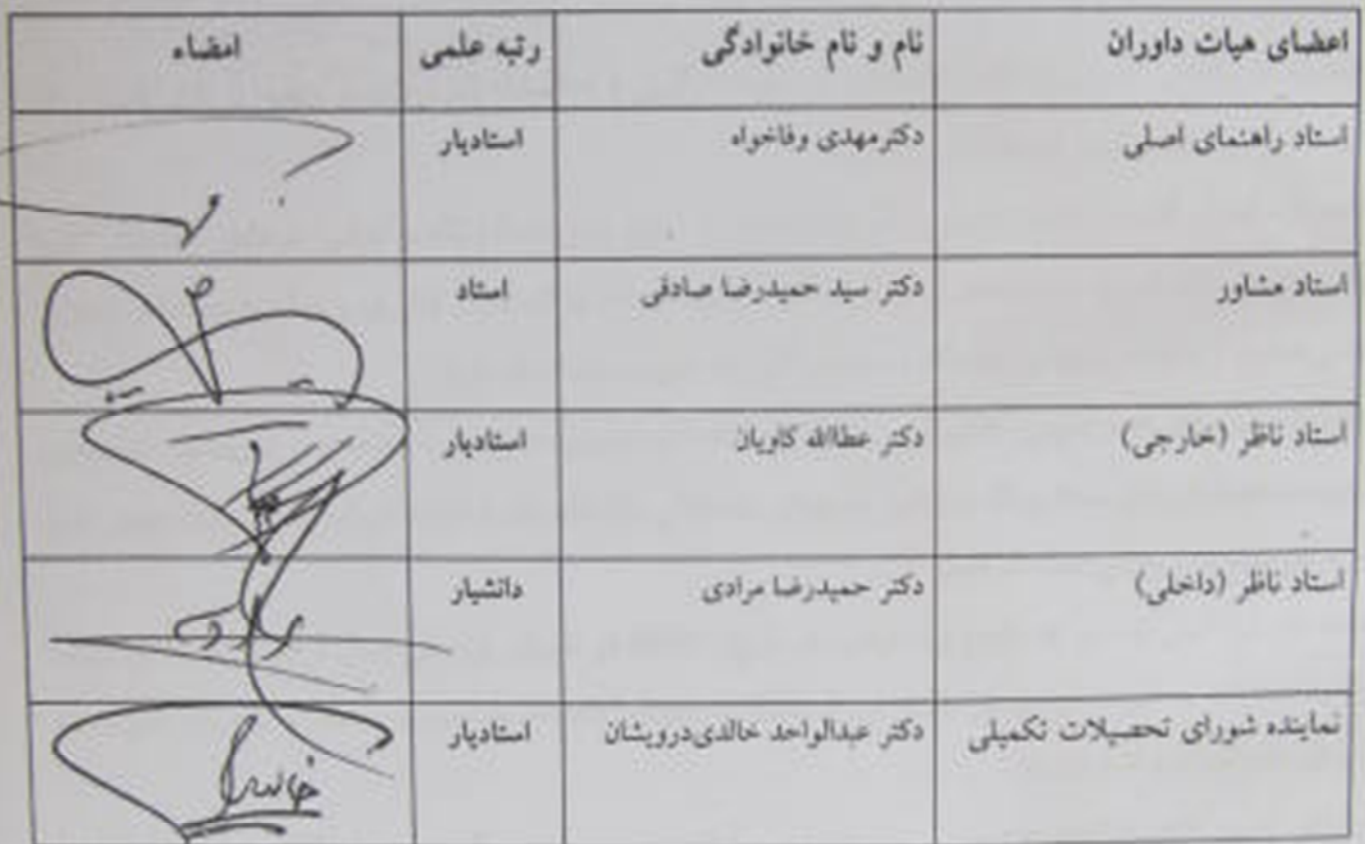 اعضای هیات داوران نام و نام خانوادگی رتبه علمی امضاء
استاد راهنمای اصلی دکترمهدی وفاخواه استادیار
استاد مشاور دکتر سید حمیدرضا صادقی استاد
استاد ناظر (خارجی) دکتر عطاالله کاویان استادیار
استاد ناظر (داخلی) دکتر حمیدرضا مرادی دانشیار
نماینده شورای تحصیلات تکمیلی دکتر عبدالواحد خالدی‌درویشان استادیار